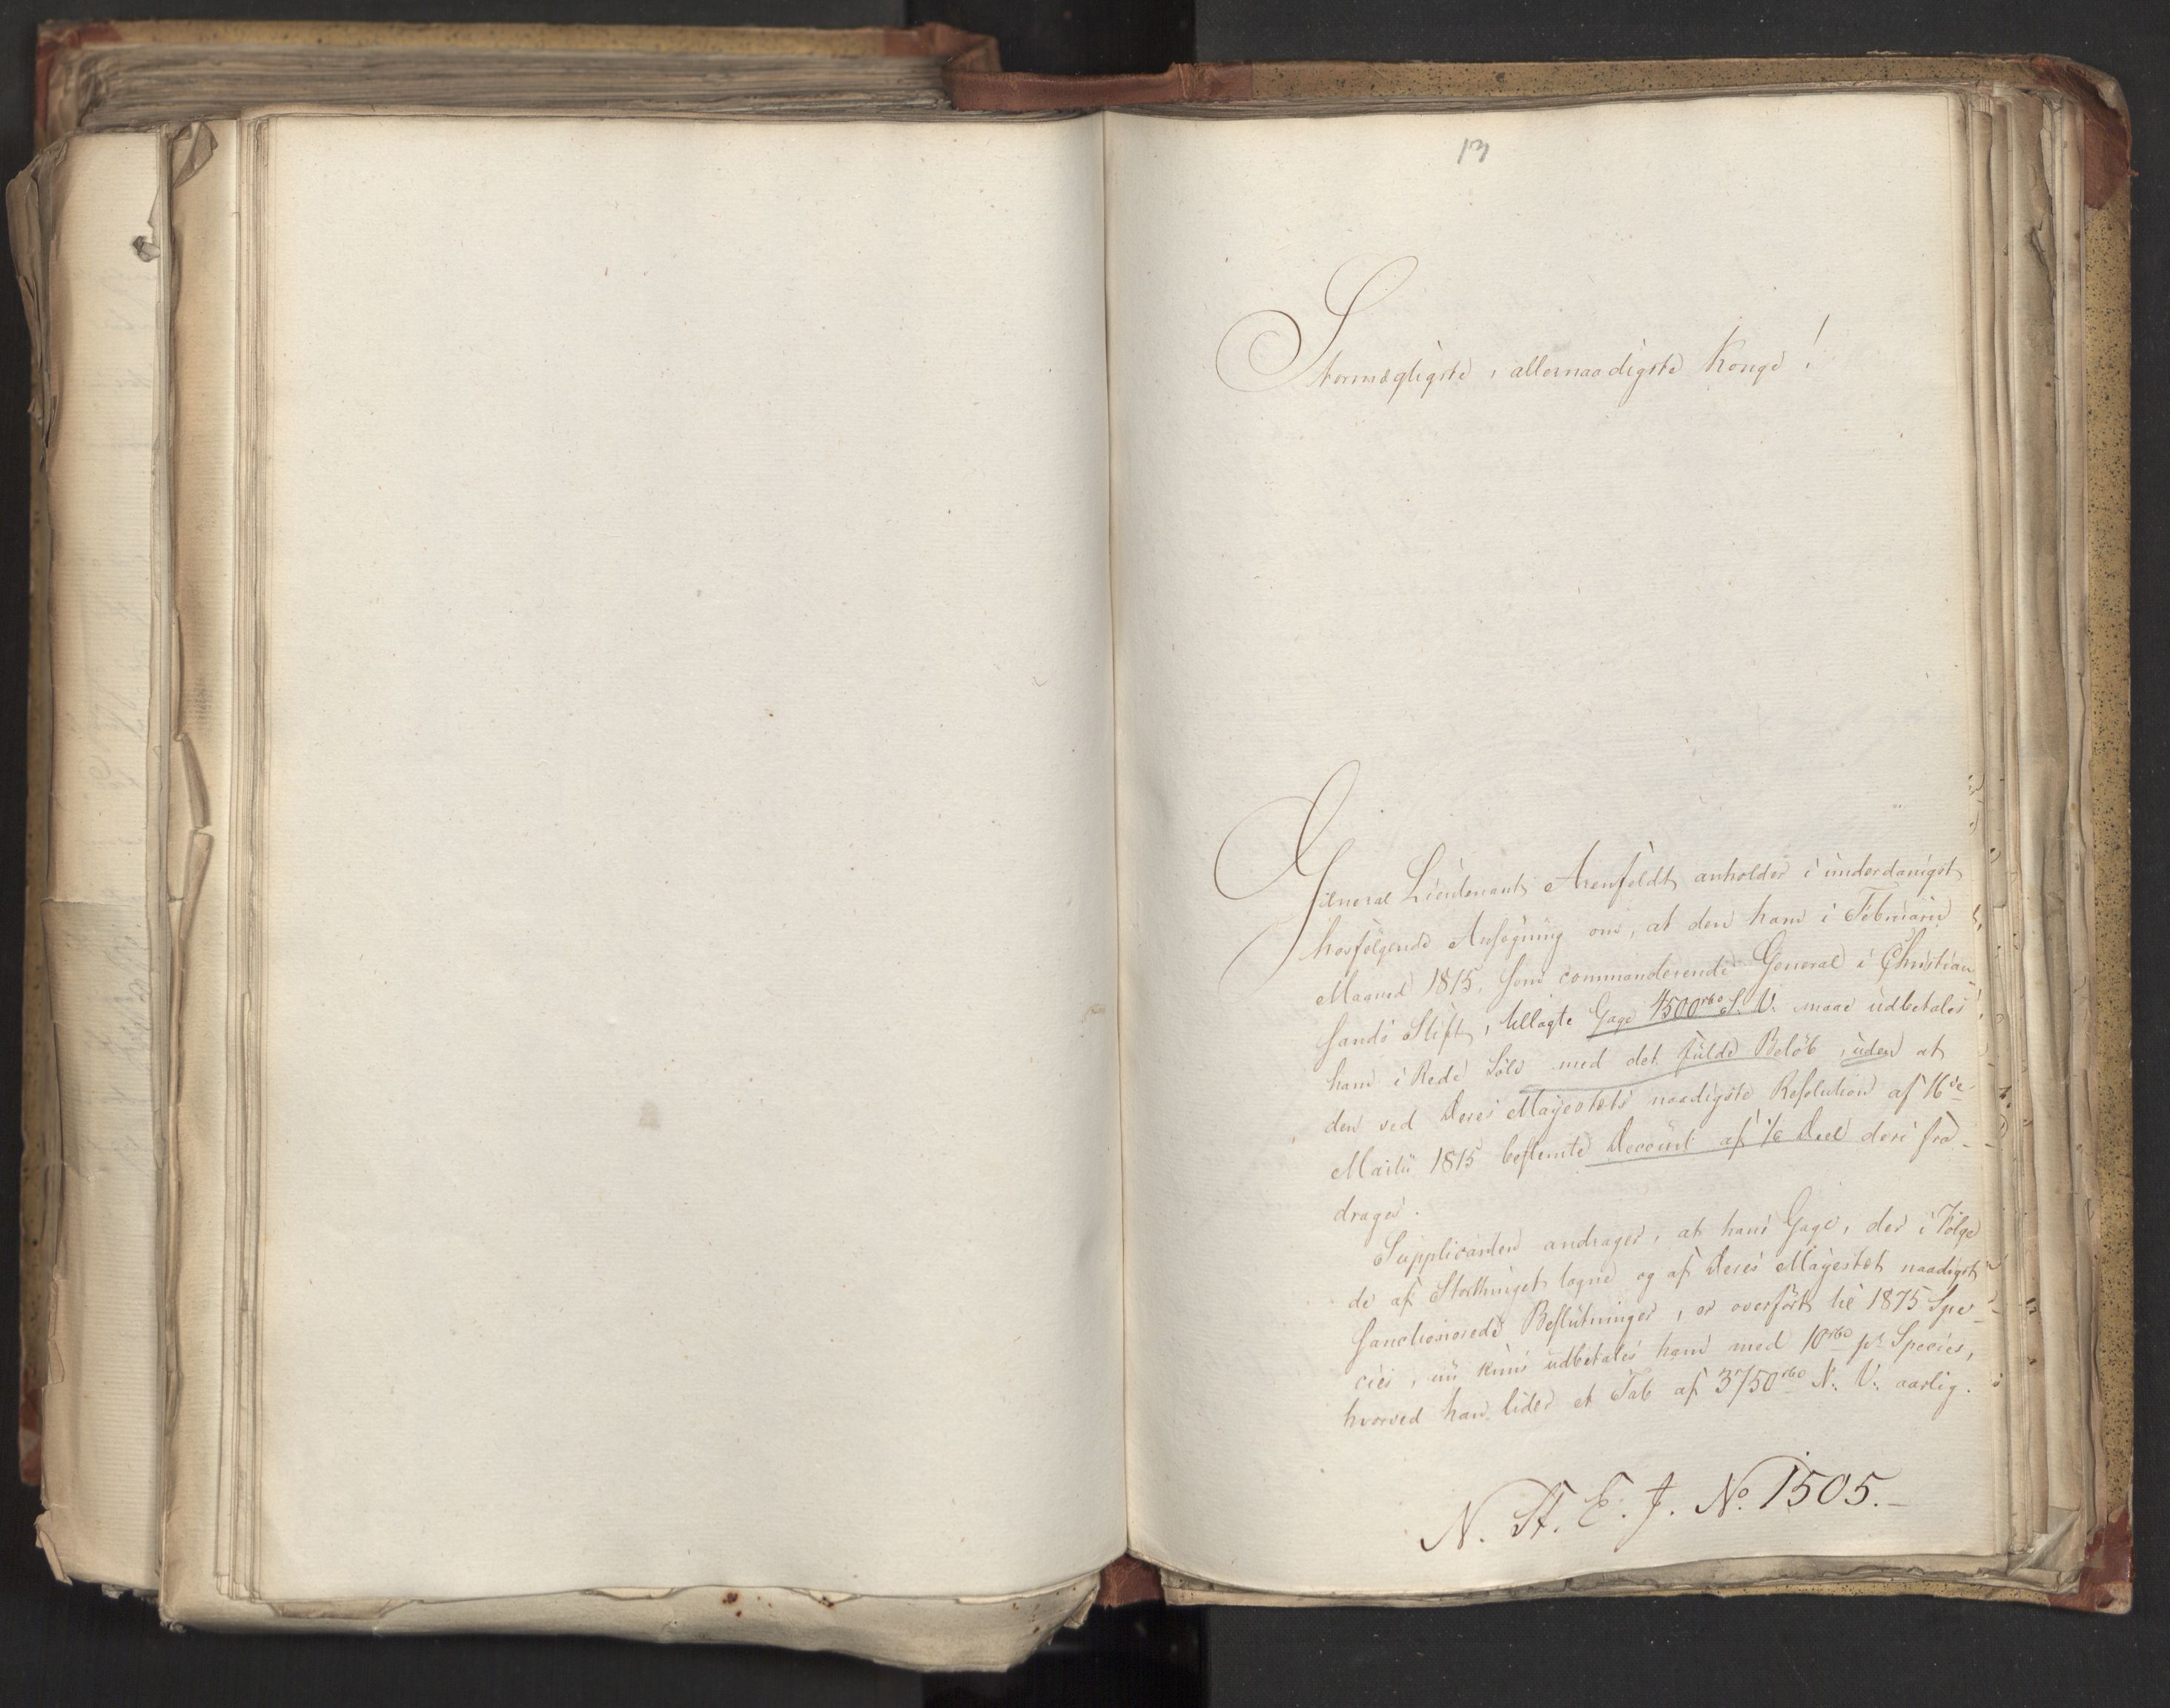 13
Stormægtigste, allernaadigste Konge!
General Lieutenant Arenfeldt anholder i underdanigst
hosfølgende Ansøgning om, at den ham i Februarii
Maaned 1815, som commanderende General i Christian-
sands Stift, tillagte Gage 4500 rbd S. V. maae udbetales
ham i Rede Sölv med det fulde Belöb, uden at
den ved Deres Majestæts naadigste Resolution af 16de
Martii 1815 bestemte Decourt af 1/6 Deel deri fra-
drages.
Supplicanten andrager, at hans Gage, der i Fölge
de af Storthinget tagne og af Deres Majestæt naadigst
sanctionerede Beslutninger, er overfört til 1875 Spe-
cies, nu kuns udbetales ham med 10 rbd pr Species,
hvorved han lider et Tab af 3750 rbd N. V. aarlig.
N. St. E. J. No. 1505.-